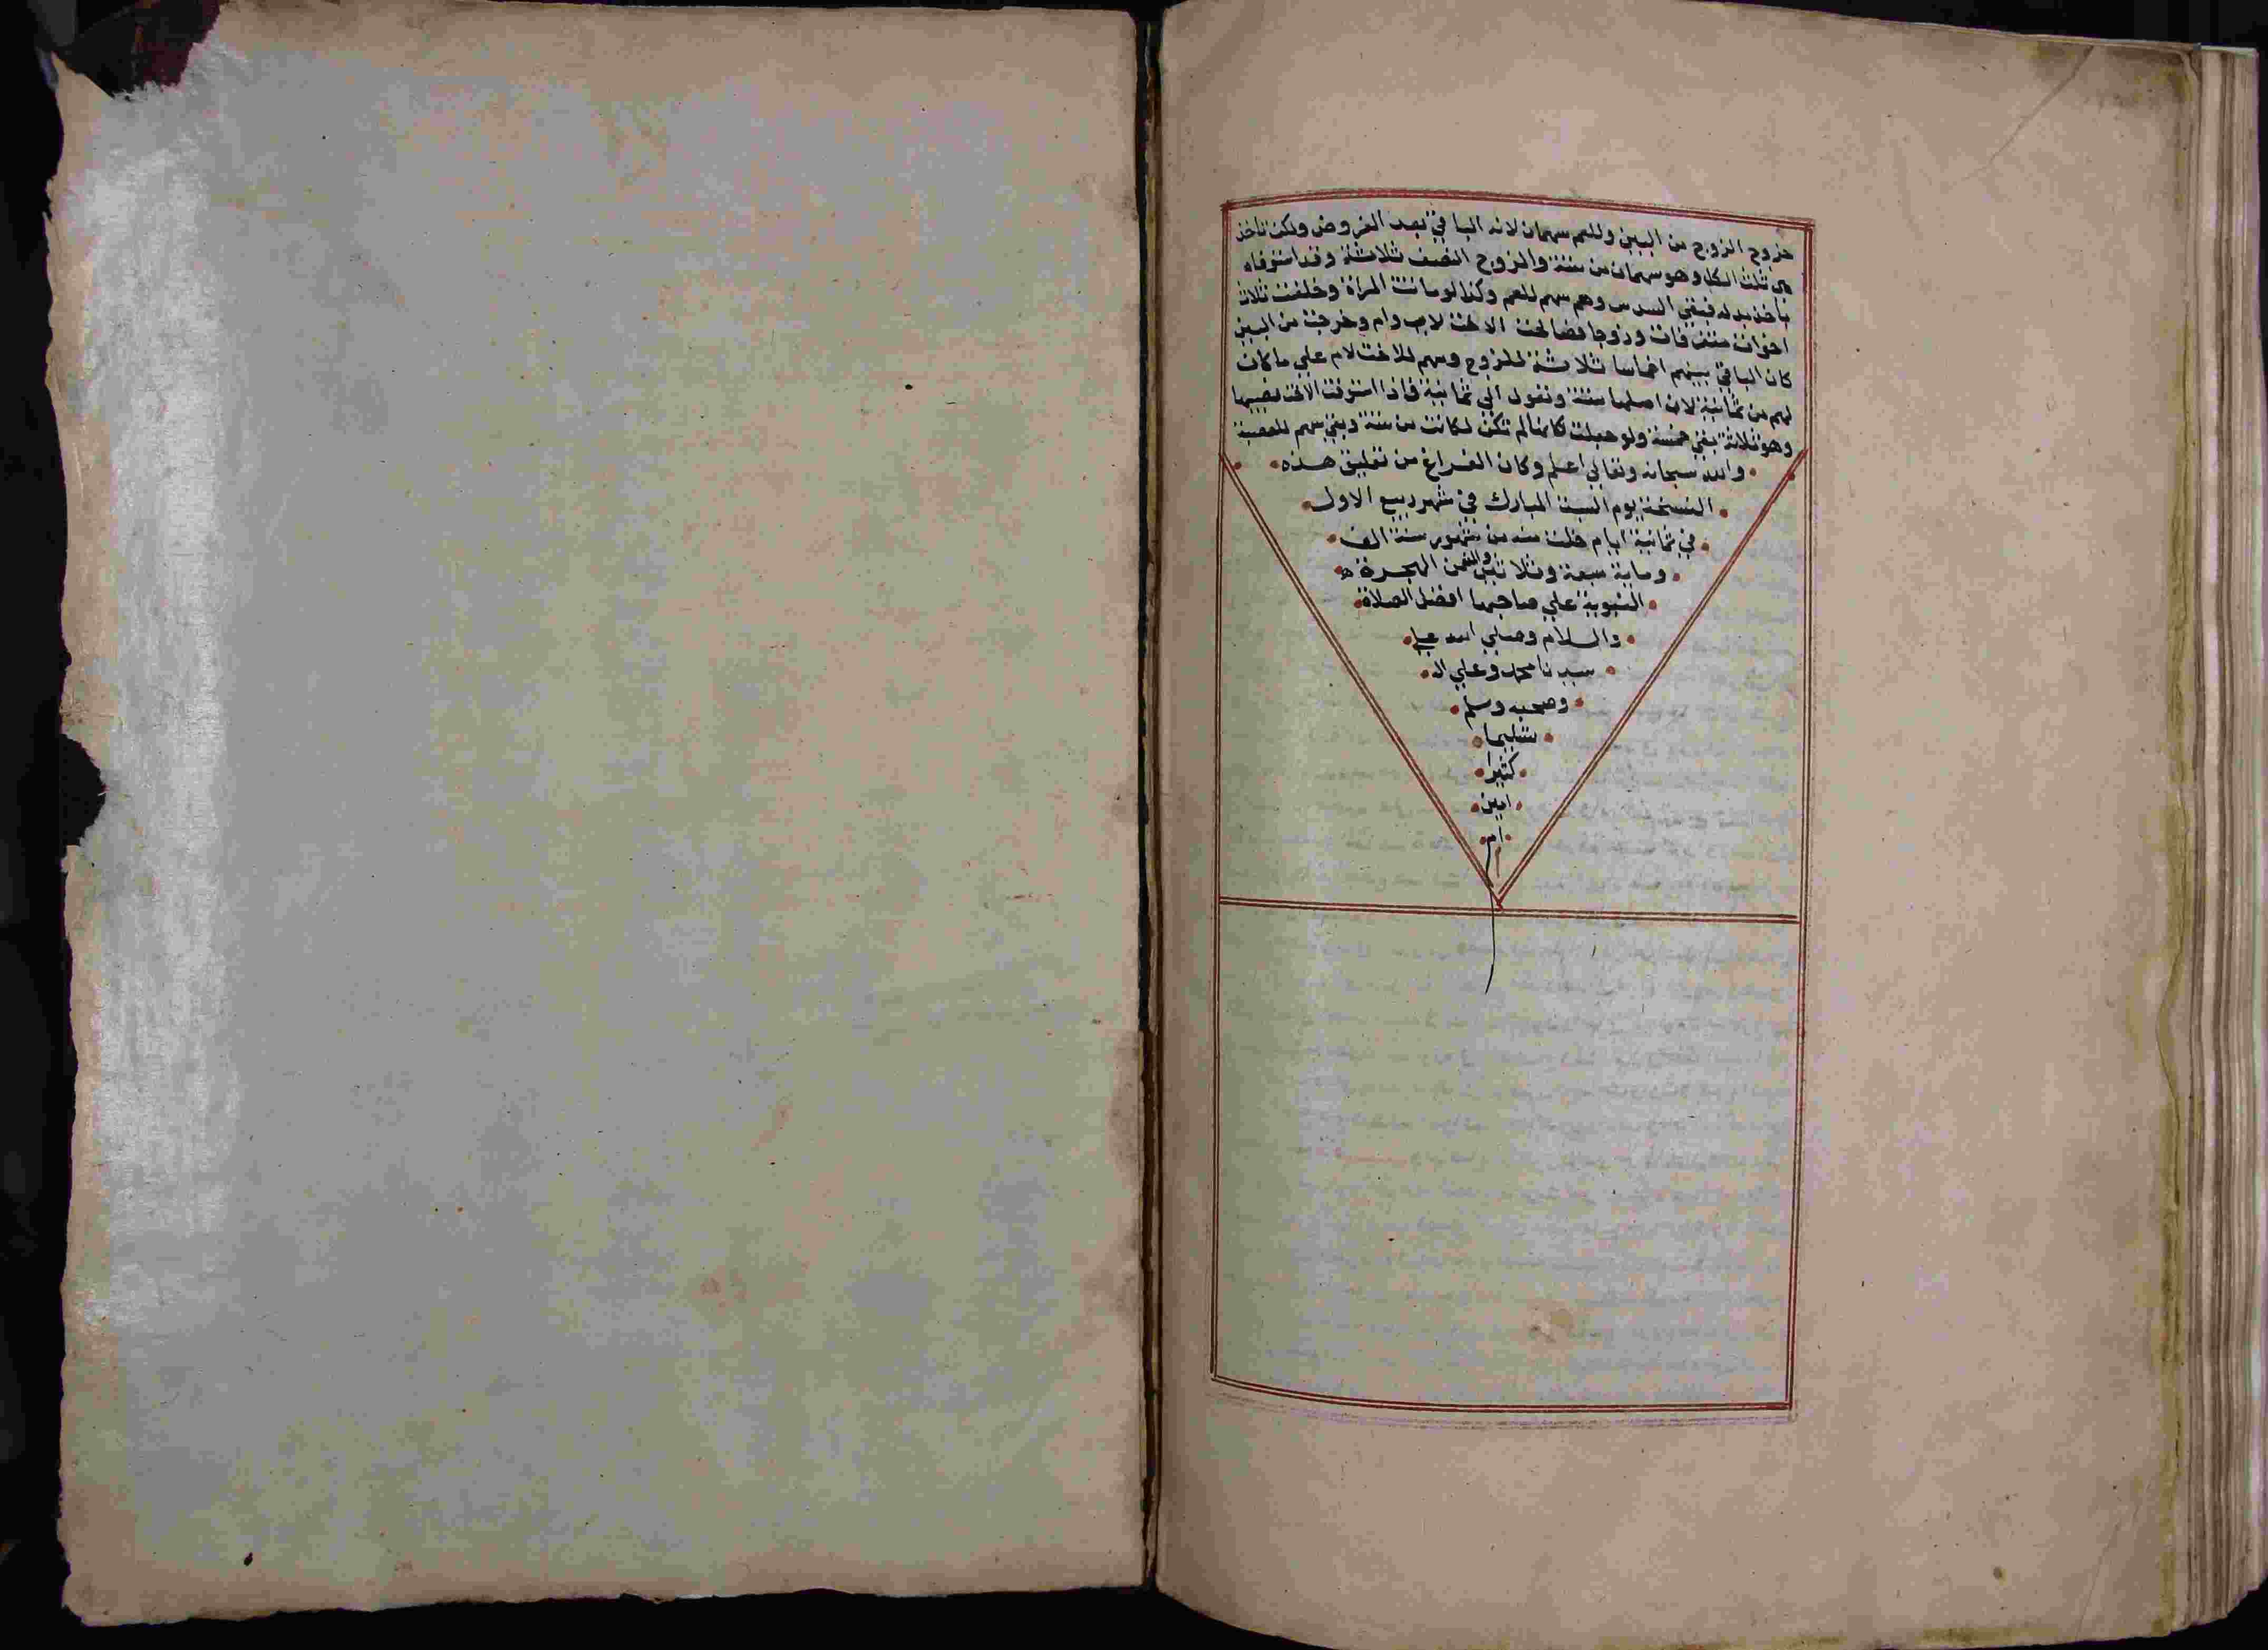 خروج الزوج من البين وللعم سهمان لانه الباقي بعد الفروض ولكن تاخذ
هي ثلث الكل وهو سهمان من ستة والزوج النصف ثلاثة وقد استوفاه
باخذ بدله فبقي السدس وهو سهم للعم وكذا لو ماتت المراة وخلفت ثلاث
اخوات متفرقات وزوجا فصالحت الاخت لاب وام وخرجت من البين
كان الباقي بينهم اخماسا ثلاثة للزوج وسهم للاخت لام علي ما كان
لهم من ثمانية لان اصلها ستة وتعول الي ثمانية فاذا استوفت الاخت نصيبها
وهو ثلاثة بقي خمسة ولو جعلت كانها لم تكن لكانت من ستة وبقي سهم للعصبة
والله سبحانه وتعالي اعلم وكان الفراغ من تعليق هذه
النسخة يوم السبت المبارك في شهر ربيع الاول
في ثمانية ايام خلت منه من شهور سنة الف
وماية سبعة وثلاثين والف من الهجرة
النبوية علي صاحبها افضل الصلاة
والسلام وصلي الله علي
سيدنا محمد وعلي اله
وصحبه وسلم
تسليما
كثيرا
امين
ام